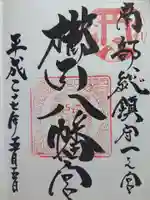 南部総鎮守一之宮
櫛引八幡宮
平成二七年五月五日